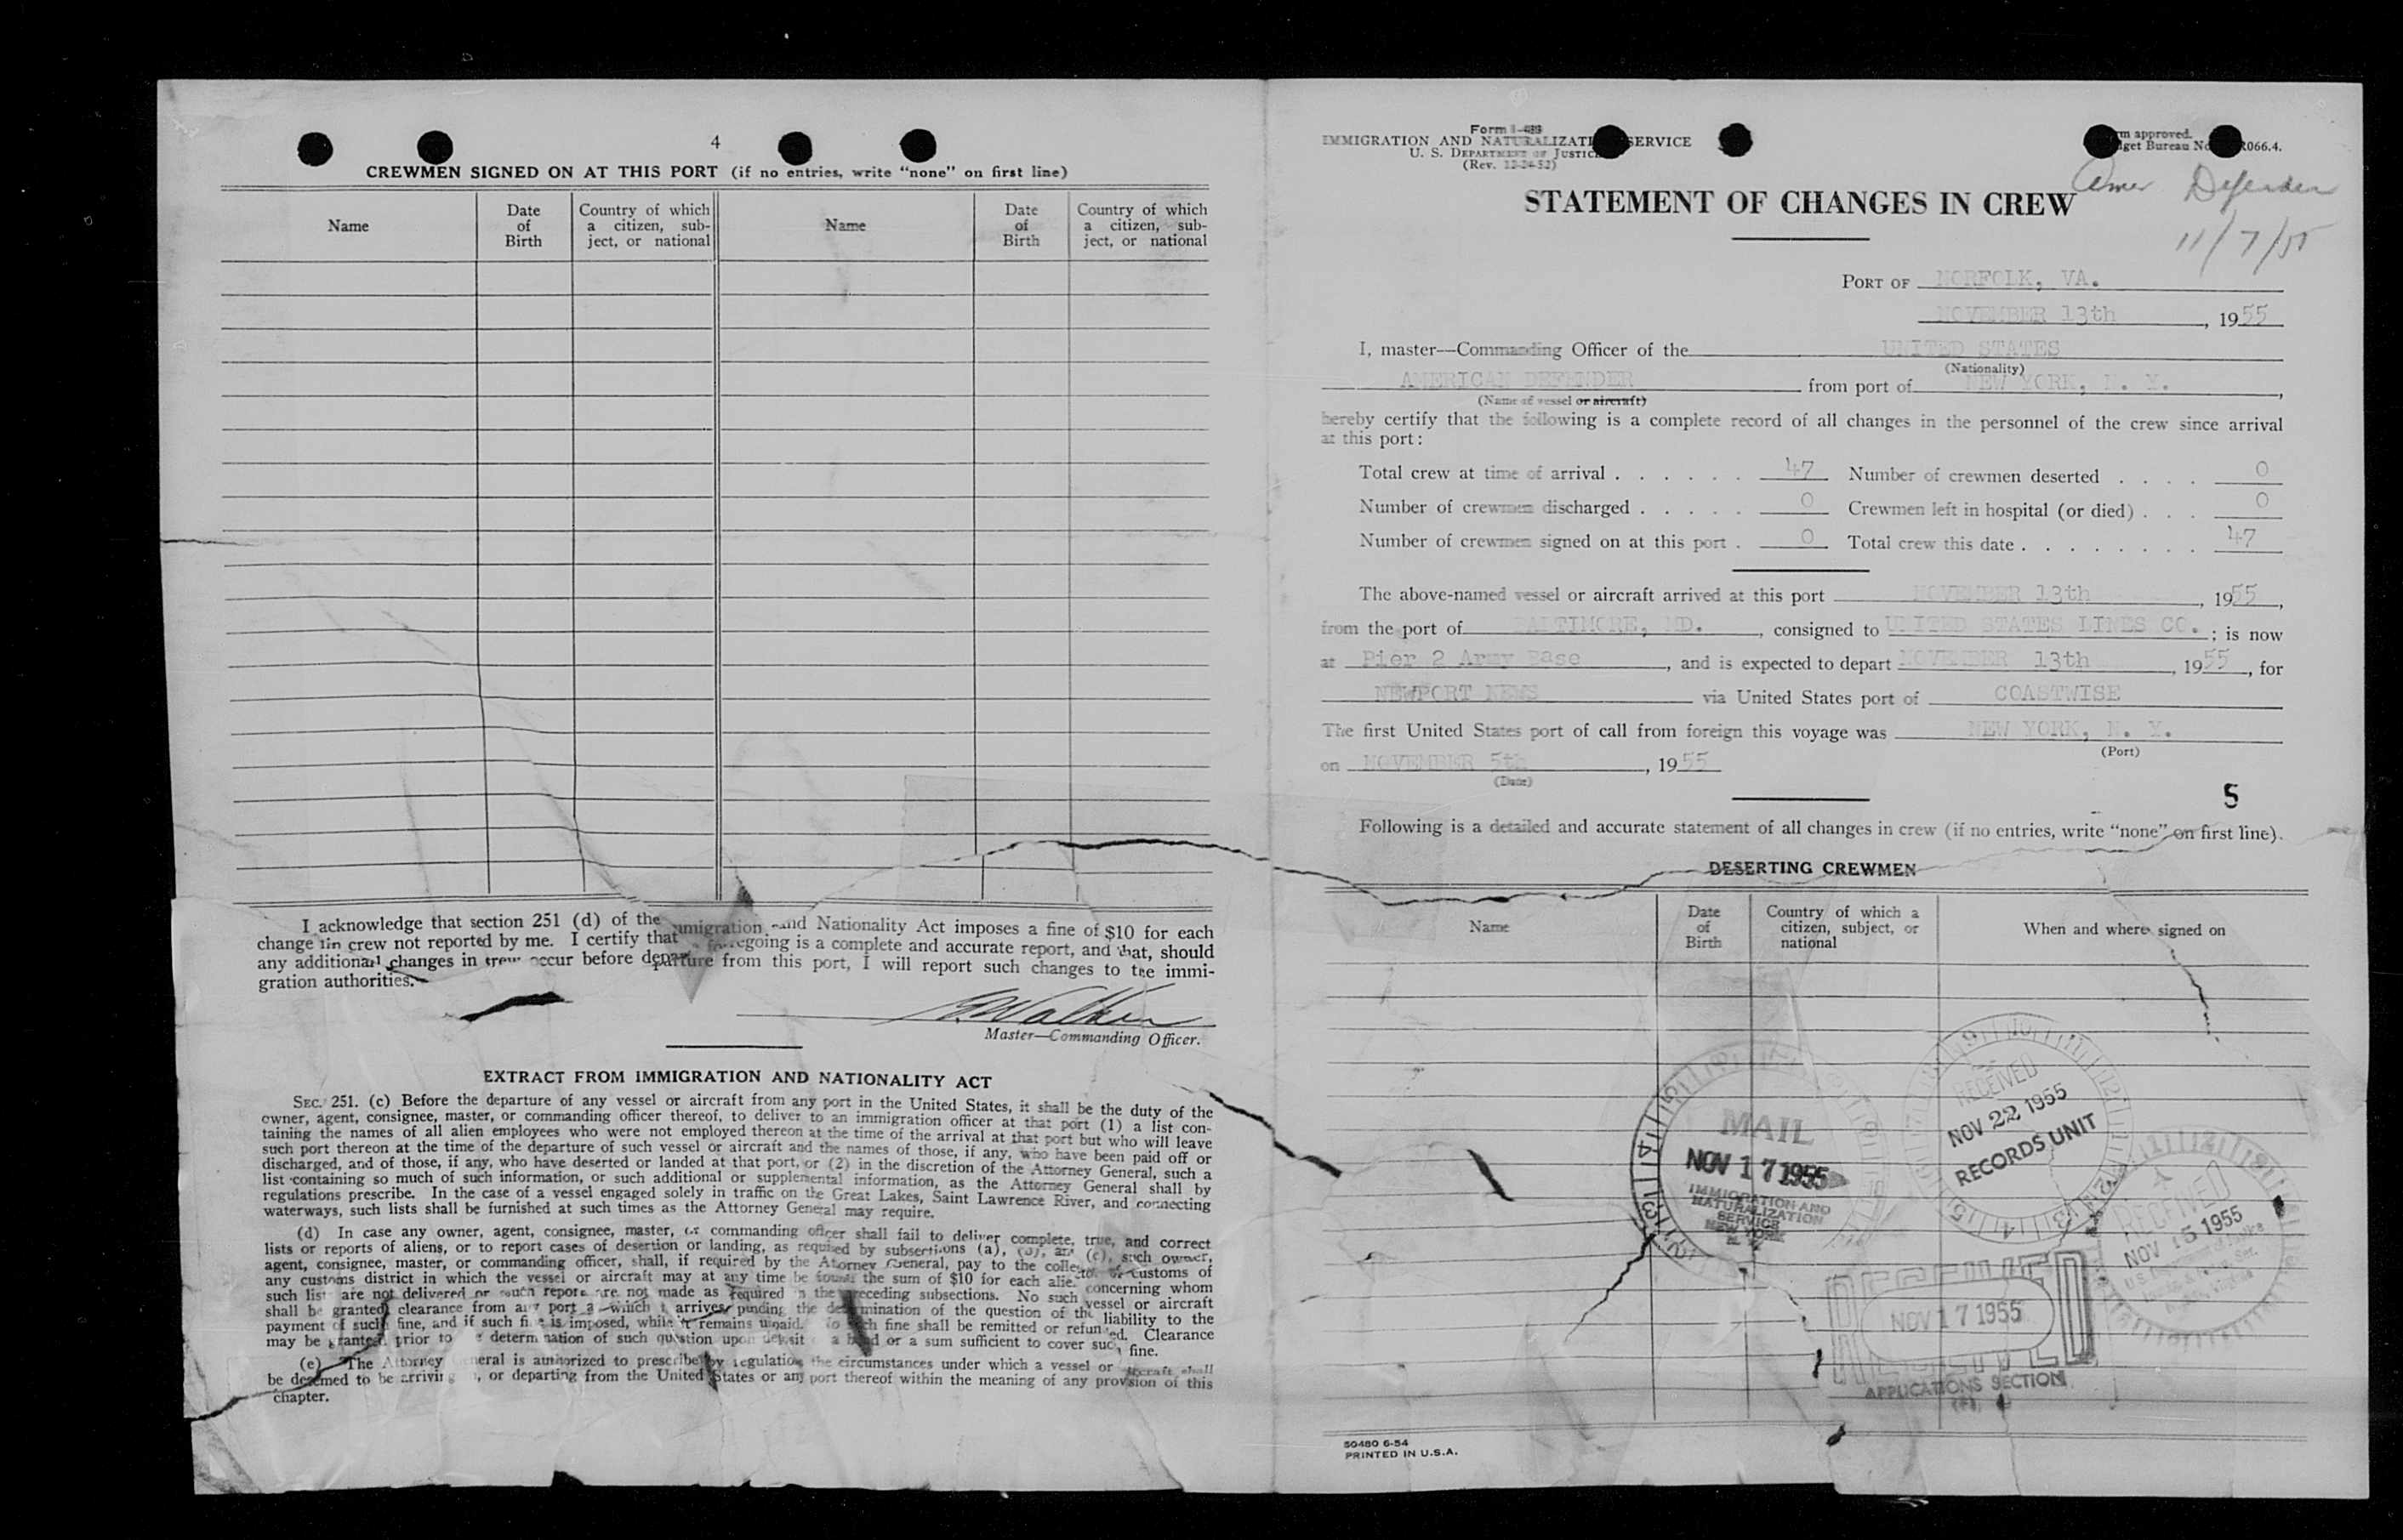 4
CREWMEN SIGNED ON AT THIS PORT (if no entries, write "none" on first line)
Name Date of Birth Country of which a citizen, subject, or national Name Date of Birth Country of which a citizen, subject, or national
I acknowledge that section 251 (d) of the Immigration and Nationality Act imposes a fine of $10 for each
change in crew not reported by me. I certify that foregoing is a complete and accurate report, and that, should
any additional changes in crew occur before departure from this port, I will report such changes to the immi-
gration authorities.
Walker
Master—Commanding Officer.
EXTRACT FROM IMMIGRATION AND NATIONALITY ACT
SEC. 251. (c) Before the departure of any vessel or aircraft from any port in the United States, it shall be the duty of the
owner, agent, consignee, master, or commanding officer thereof, to deliver to an immigration officer at that port (1) a list con-
taining the names of all alien employees who were not employed thereon at the time of the arrival at that port but who will leave
such port thereon at the time of the departure of such vessel or aircraft and the names of those, if any, who have been paid off or
discharged, and of those, if any, who have deserted or landed at that port, or (2) in the discretion of the Attorney General, such a
list containing so much of such information, or such additional or supplemental information, as the Attorney General shall by
regulations prescribe. In the case of a vessel engaged solely in traffic on the Great Lakes, Saint Lawrence River, and connecting
waterways, such lists shall be furnished at such times as the Attorney General may require.
(d) In case any owner, agent, consignee, master, or commanding officer shall fail to deliver complete, true, and correct
lists or reports of aliens, or to report cases of desertion or landing, as required by subsections (a), (b), and (c), such owner,
agent, consignee, master, or commanding officer, shall, if required by the Attorney General, pay to the collector of customs of
any customs district in which the vessel or aircraft may at any time be found the sum of $10 for each alien concerning whom
such list are not delivered or such report are not made as required in the preceding subsections. No such vessel or aircraft
shall be granted clearance from any port at which it arrives pending the determination of the question of the liability to the
payment of such fine, and if such fine is imposed, while it remains unpaid. No such fine shall be remitted or refunded. Clearance
may be granted prior to determination of such question upon deposit a bond or a sum sufficient to cover such fine.
(e) The Attorney General is authorized to prescribe by regulation the circumstances under which a vessel or aircraft shall
be deemed to be arriving, or departing from the United States or any port thereof within the meaning of any provision of this
chapter.
Form I-489
IMMIGRATION AND NATURALIZATION SERVICE
U. S. DEPARTMENT OF JUSTICE
(Rev. 12-24-52)
approved.
Budget Bureau No. R066.4.
Amer Defender
11/7/55
STATEMENT OF CHANGES IN CREW
PORT OF NORFOLK, VA.
NOVEMBER 13th, 1955
I, master—Commanding Officer of the UNITED STATES
(Nationality)
AMERICAN DEFENDER from port of NEW YORK, N. Y.,
(Name of vessel or aircraft)
hereby certify that the following is a complete record of all changes in the personnel of the crew since arrival
at this port:
Total crew at time of arrival . . . . . . 47 Number of crewmen deserted . . . . 0
Number of crewmen discharged . . . . . 0 Crewmen left in hospital (or died) . . . 0
Number of crewmen signed on at this port . 0 Total crew this date . . . . . . . . 47
The above-named vessel or aircraft arrived at this port NOVEMBER 13th, 1955,
from the port of BALTIMORE, MD., consigned to UNITED STATES LINES CO.; is now
at Pier 2 Army Base, and is expected to depart NOVEMBER 13th, 1955, for
NEWPORT NEWS via United States port of COASTWISE
The first United States port of call from foreign this voyage was NEW YORK, N. Y.
(Port)
on NOVEMBER 5th, 1955
(Date)
5
Following is a detailed and accurate statement of all changes in crew (if no entries, write "none" on first line).
DESERTING CREWMEN
Name Date of Birth Country of which a citizen, subject, or national When and where signed on
MAIL
NOV 17 1955
IMMIGRATION AND
NATURALIZATION
SERVICE
NEW YORK
N. Y.
RECEIVED
NOV 22 1955
RECORDS UNIT
RECEIVED
NOV 15 1955
RECEIVED
NOV 17 1955
APPLICATIONS SECTION
50480 6-54
PRINTED IN U.S.A.